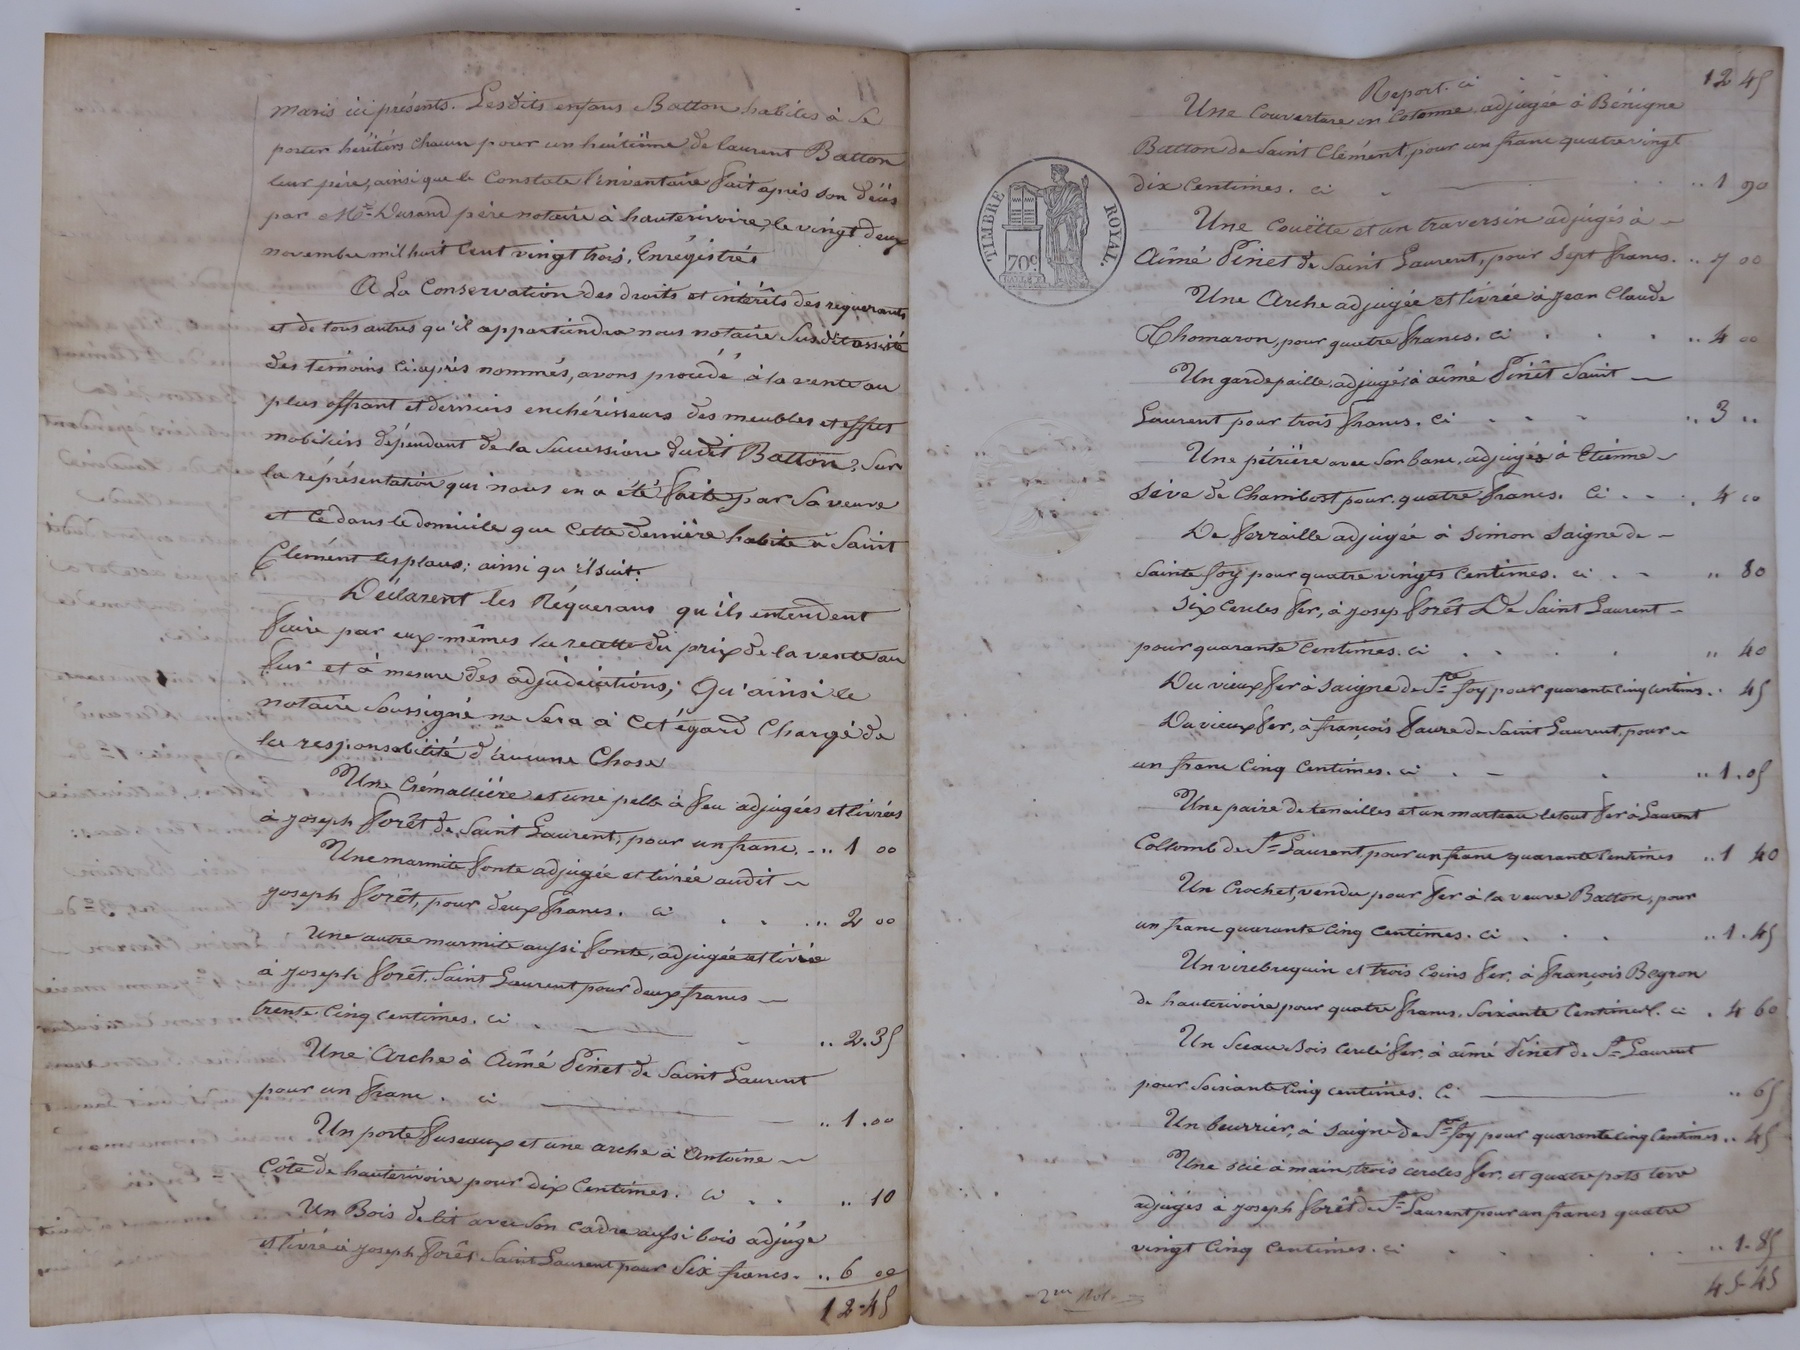 maris ici présents. Lesdits enfans Batton habiles à se
porter héritiers chacun pour un huitième de laurent Batton
leur père, ainsi que le Constate l'inventaire fait après son décès
par Me Durand père notaire à hauterivoire, le vingt deux
novembre mil huit Cent vingt trois, Enrégistré.
A La Conservation des droits et intérêts des requerants
et de tous autres qu'il appartiendra nous notaire Susdit assisté
des temoins ci-après nommés, avons procédé à la vente au
plus offrant et derniers enchérisseurs des meubles et effets
mobiliers dépendant de la Succession dudit Batton, Sur
la réprésentation qui nous en a été faite par Sa veuve
et Ce dans le domicile que Cette dernière habite à Saint
Clemént les places; ainsi qu'il suit.
Déclarent les Réquerans qu'ils entendent
faire par eux-mêmes la recette du prix de la vente au
fur et à mesure des adjudications; Qu'ainsi le
notaire Soussigné ne Sera à Cet égard Chargé de
la responsabilité d'aucune Chose
Une Crémaillière et une pelle à feu adjugées et livrées
à joseph forêt de Saint Laurent, pour un franc. .. 1 00
Une marmite fonte adjugée et livrée audit
joseph forêt, pour deux francs. ci .. 2 00
Une autre marmite aussi fonte, adjugée et livrée
à joseph forêt, Saint Laurent pour deux francs
trente Cinq centimes. ci .. 2.35
Une Arche à Aîmé Pinet de Saint Laurent
pour un franc. ci .. 1.00
Un porte fuseaux et une arche à Antoine
Côte de hauterivoire pour dix Centimes. ci .. 10
Un Bois de lit avec Son Cadre aussi bois adjugé
et livré à joseph forêt Saint Laurent pour Six francs. .. 6 00
12.45
Report. ci 12 45
Une Couverture en Cotonne adjugée à Bénigne
Batton de Saint Clément, pour un franc quatre vingt
dix Centimes. ci .. 1 90
Une Couëtte et un traversin adjugés à
Aîmé Pinet de Saint Laurent, pour Sept francs. .. 7 00
Une Arche adjugée et livrée à Jean Claude
Thomaron, pour quatre francs. ci .. 4 00
Un gardepaille, adjugé à aîmé Pinêt Saint
Laurent pour trois francs. Ci .. 3 ..
Une pétrière avec Son banc, adjugés à Etiénne
Séve de Chambost pour quatre francs. Ci . 4 00
De ferraille adjugée à Simon Saigne de
Sainte foy pour quatre vingts Centimes. ci .. 80
Six Cercles fer, à josep forêt De Saint Laurent
pour quarante Centimes. ci .. 40
Du vieux fer à Saigne de Ste foy pour quarante Cinq Centimes .. 45
Du vieux fer, à françois faure de Saint Laurent, pour
un franc Cinq Centimes. ci .. 1.05
Une paire de tenailles et un marteau le tout fer à Laurent
Collomb de St Laurent, pour un franc quarante Centimes .. 1 40
Un Crochet, vendu pour fer à la veuve Batton, pour
un franc quarante Cinq Centimes. Ci .. 1.45
Un virebrequin et trois Coins fer, à françois Beyron
de hauterivoire pour quatre francs. Soixante Centimes. ci . 4 60
Un Sceau Bois Cerclé fer, à aîmé Pinet de St Laurent
pour Soixante Cinq Centimes. Ci .. 65
Un beurrier, à Saigne de Ste foy pour quarante Cinq Centimes .. 45
Une scie à main, trois cercles fer, et quatre pots terre
adjugés à joseph forêt de St Laurent pour un francs quatre
vingt Cinq Centimes. ci .. 1.85
45.45
TIMBRE ROYAL.
70c